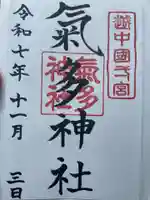 越中國一宮
氣多神社
氣多
神社
令和七年
十一月
三日